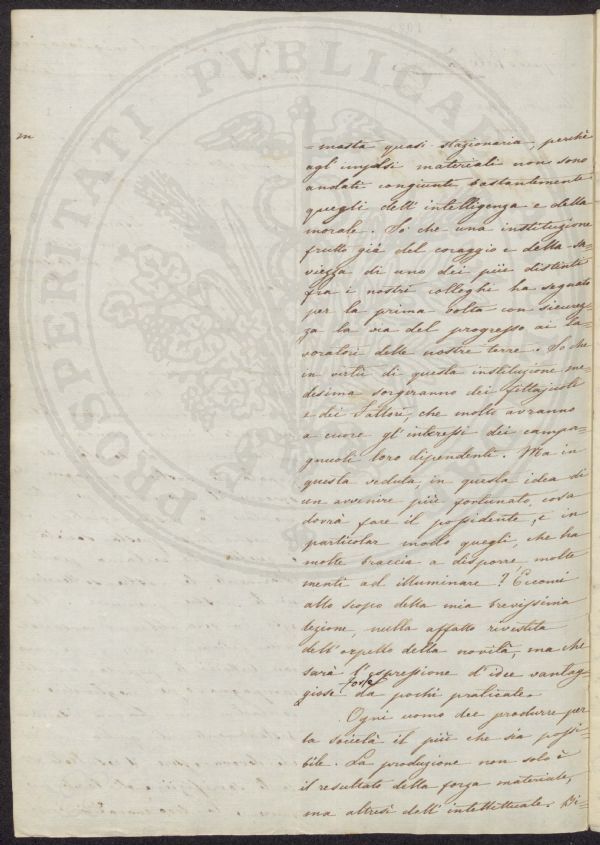 PROSPERITATI PVBLICAE
m
=masta quasi stazionaria, perchè
agl'impulsi materiali non sono
andati congiunti bastantemente
quegli dell'intelligenza e della
morale. So che una instituzione
frutto già del coraggio e della sa=
viezza di uno dei più distinti
fra i nostri colleghi ha segnato
per la prima volta con sicurez=
za la via del progresso ai la=
voratori delle nostre terre. So che
in virtù di questa instituzione me=
desima sorgeranno dei fittajuoli
e dei Fattori, che molto avranno
a cuore gl'interessi dei campa=
gnuoli loro dipendenti. Ma in
questa veduta, in questa idea di
un avvenire più fortunato, cosa
dovrà fare il possidente, e in
particolar modo quegli, che ha
molte braccia a disporre molte
menti ad illuminare? Eccomi
allo scopo della mia brevissima
lezione, nulla affatto rivestita
dell'orpello della novità, ma che
sarà l'espressione d'idee vantag=
giose forse da pochi praticate.
Ogni uomo dee produrre per
la società il più che sia possi=
bile. La produzione non solo è
il resultato della forza materiale,
ma altresì dell'intellettuale. Di=